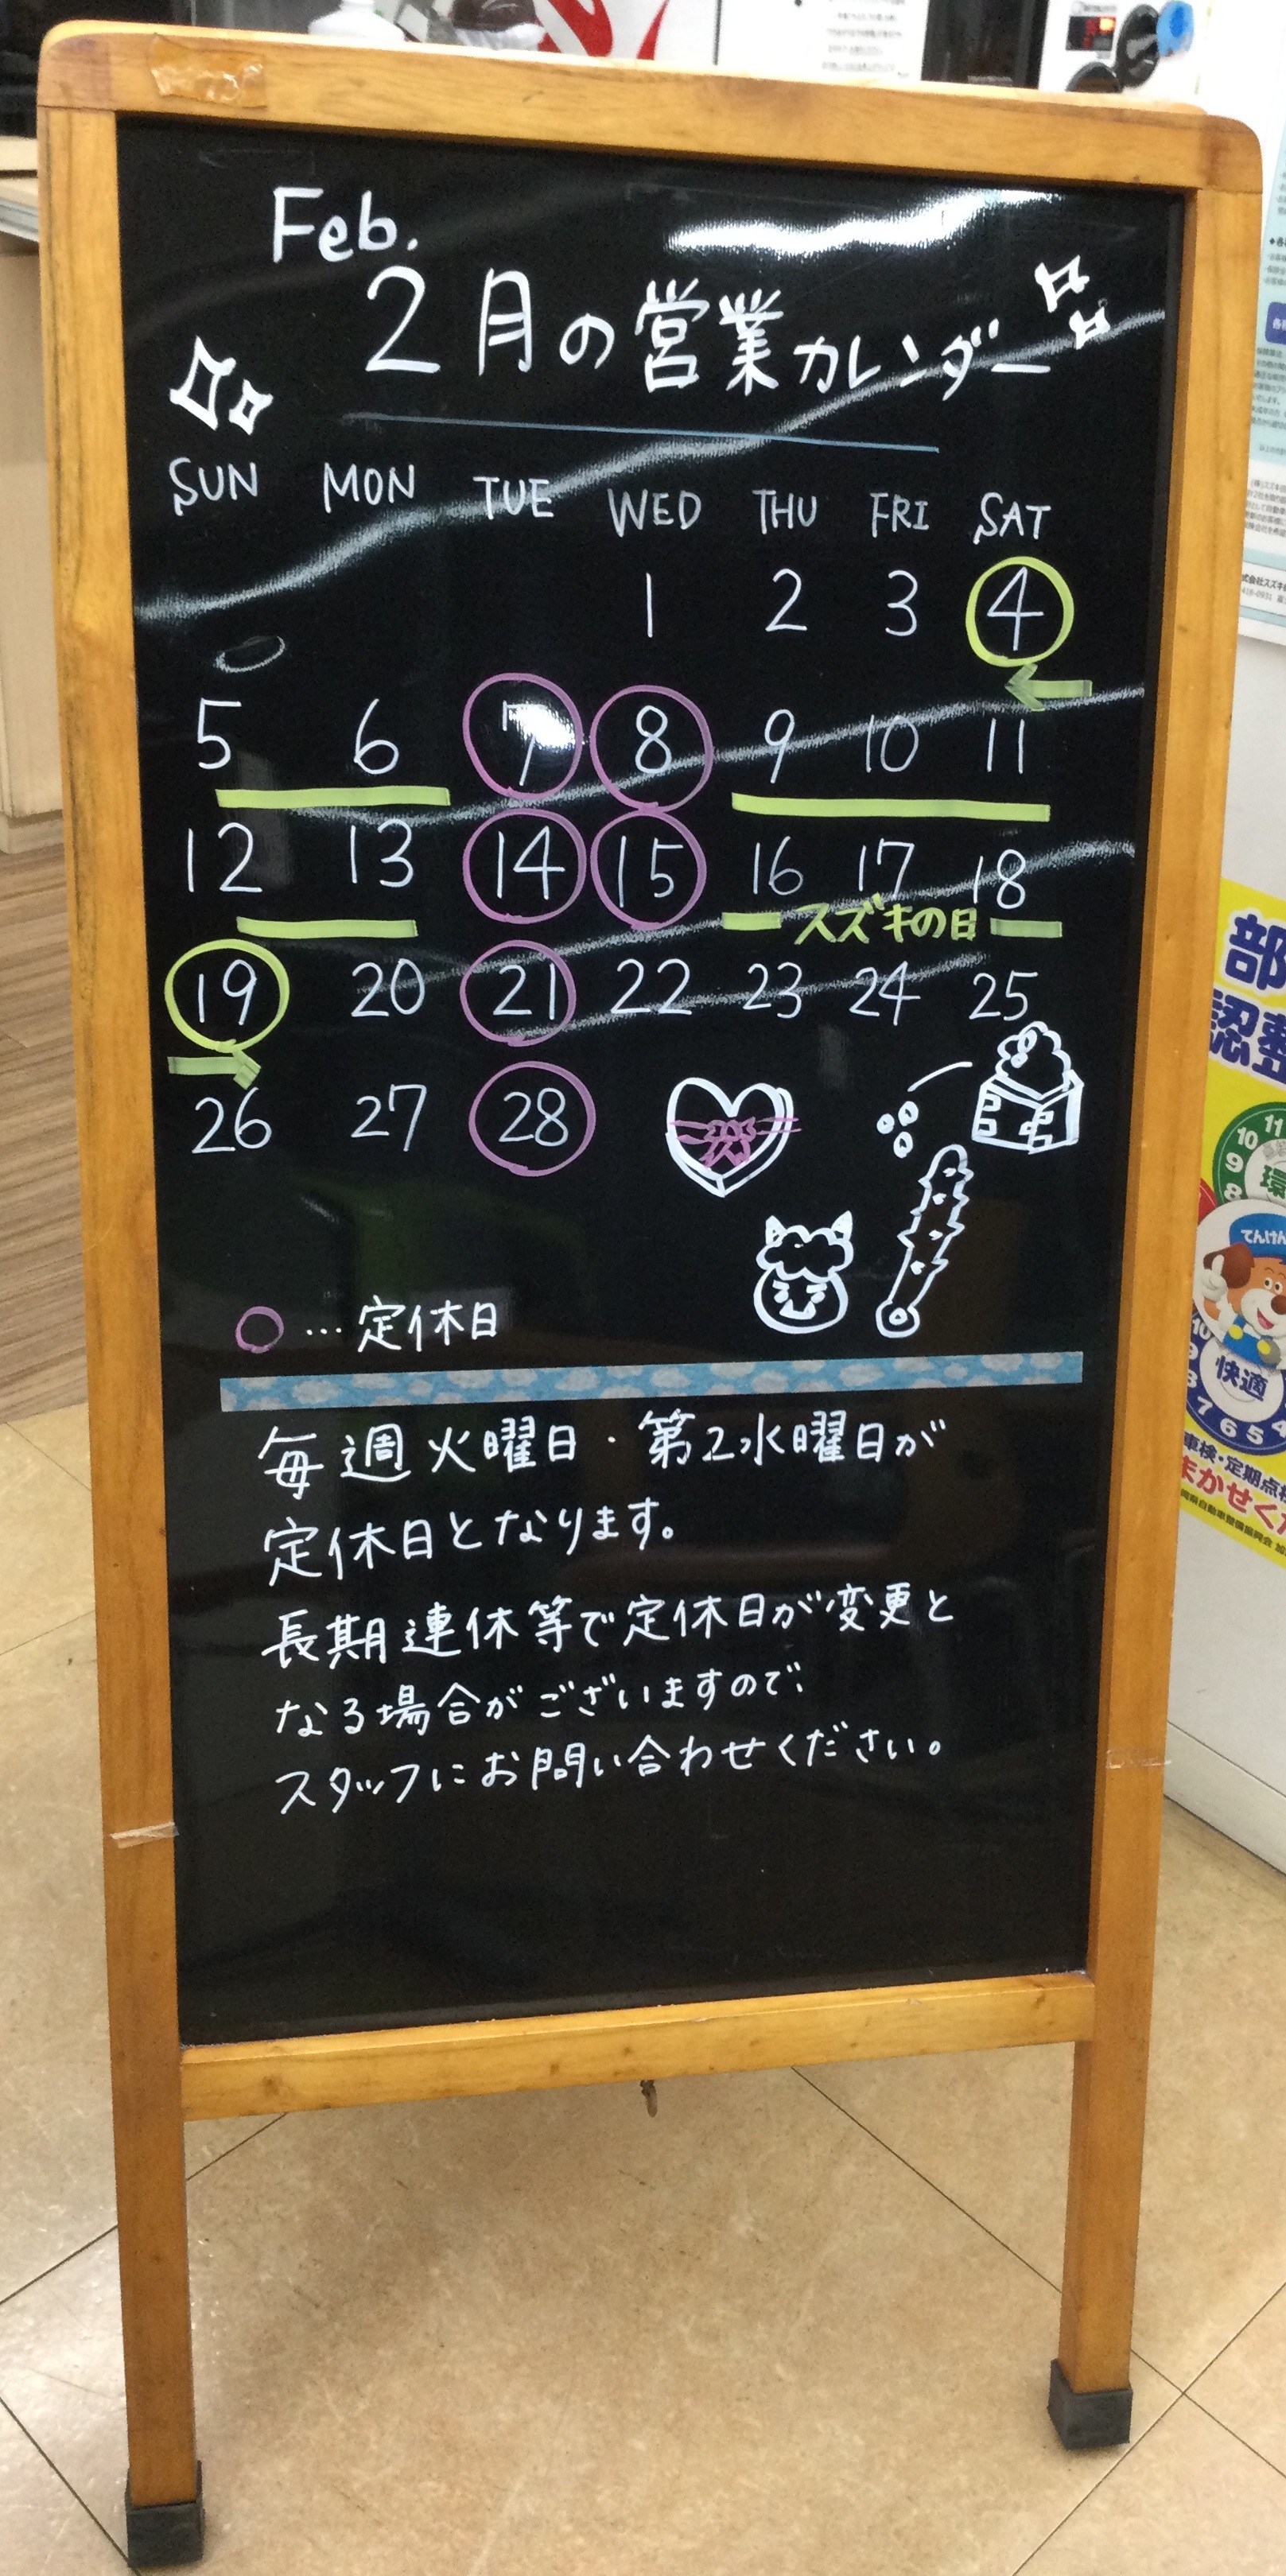 Feb.
2月の営業カレンダー
SUN MON TUE WED THU FRI SAT
1 2 3 4
5 6 7 8 9 10 11
12 13 14 15 16 17 18
スズキの日
19 20 21 22 23 24 25
26 27 28
○…定休日
毎週火曜日・第2水曜日が
定休日となります。
長期連休等で定休日が変更と
なる場合がございますので、
スタッフにお問い合わせください。
部
認整
11
10
9
8
てんけん
快適
7 6 5 4
車検・定期点検
まかせくだ